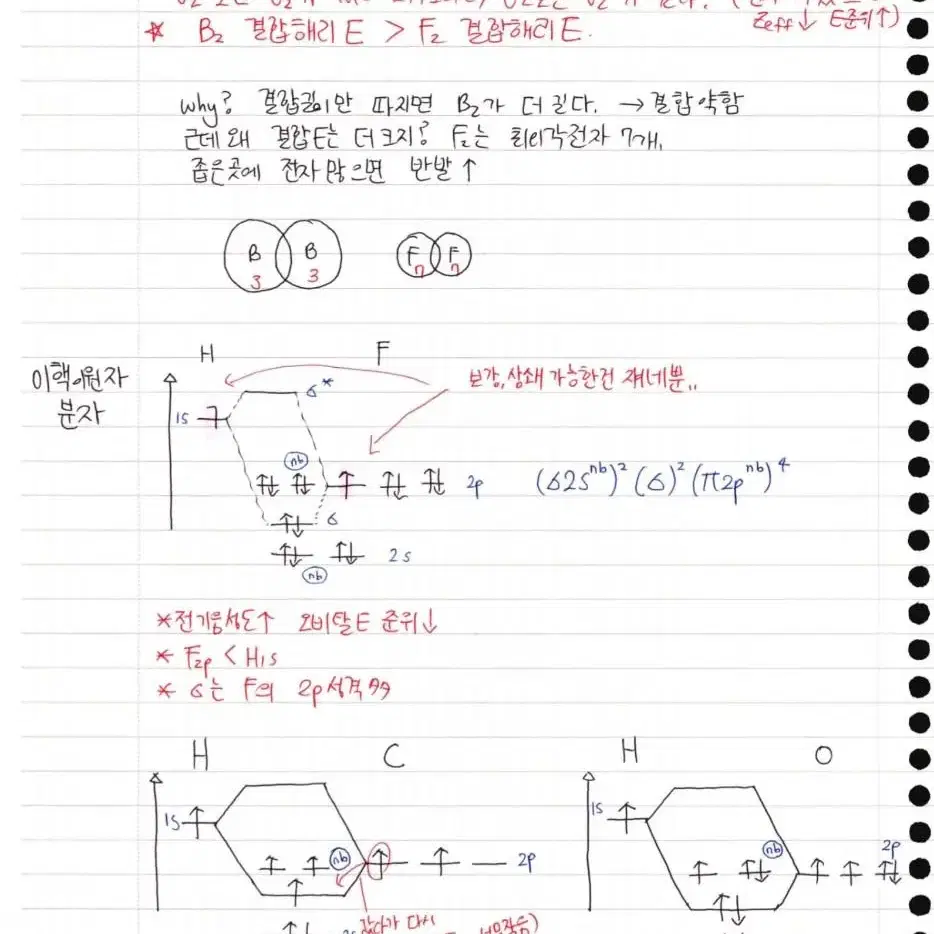 * B₂ 결합해리 E > F₂ 결합해리E.
Zeff↓ E준위↑)
why? 결합길이만 따지면 B₂가 더 길다. → 결합 약함
근데 왜 결합E는 더 크지? F₂는 최외각전자 7개,
좁은곳에 전자 많으면 반발↑
B B F F
3 3 7 7
이핵이원자
분자
H F
보강,상쇄 가능한건 쟤네뿐..
σ*
1s
nb
2p (σ2s^nb)² (σ)² (π2p^nb)⁴
σ
2s
nb
*전기음성도↑ 오비탈E 준위↓
* F₂p < H1s
* σ는 F의 2p성격 多
H C H O
1s nb 2p
1s nb 2p
갔다가 다시